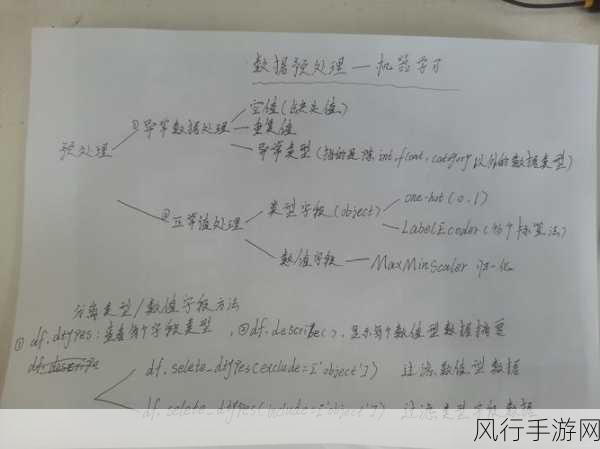 数据预处理—机器学习
空值(缺失值)
预处理 ①异常数据处理 重复值
异常类型(指的是除int,float,category以外的数据类型)
②正常值处理 类型字段(object) one-hot(0.1)
LabelEcoder(
数值字段 MaxMinScaler 归一化
分离类型/数值字段方法
① df.dtypes:查看每个字段类型,②df.describe(),显示每个数值型数据摘要
df.describe
df.selete_dtypes(exclude=['object']) 过滤数值型数据
df.selete_dtypes(include=['object']) 过滤类型字段数据
风行手游网